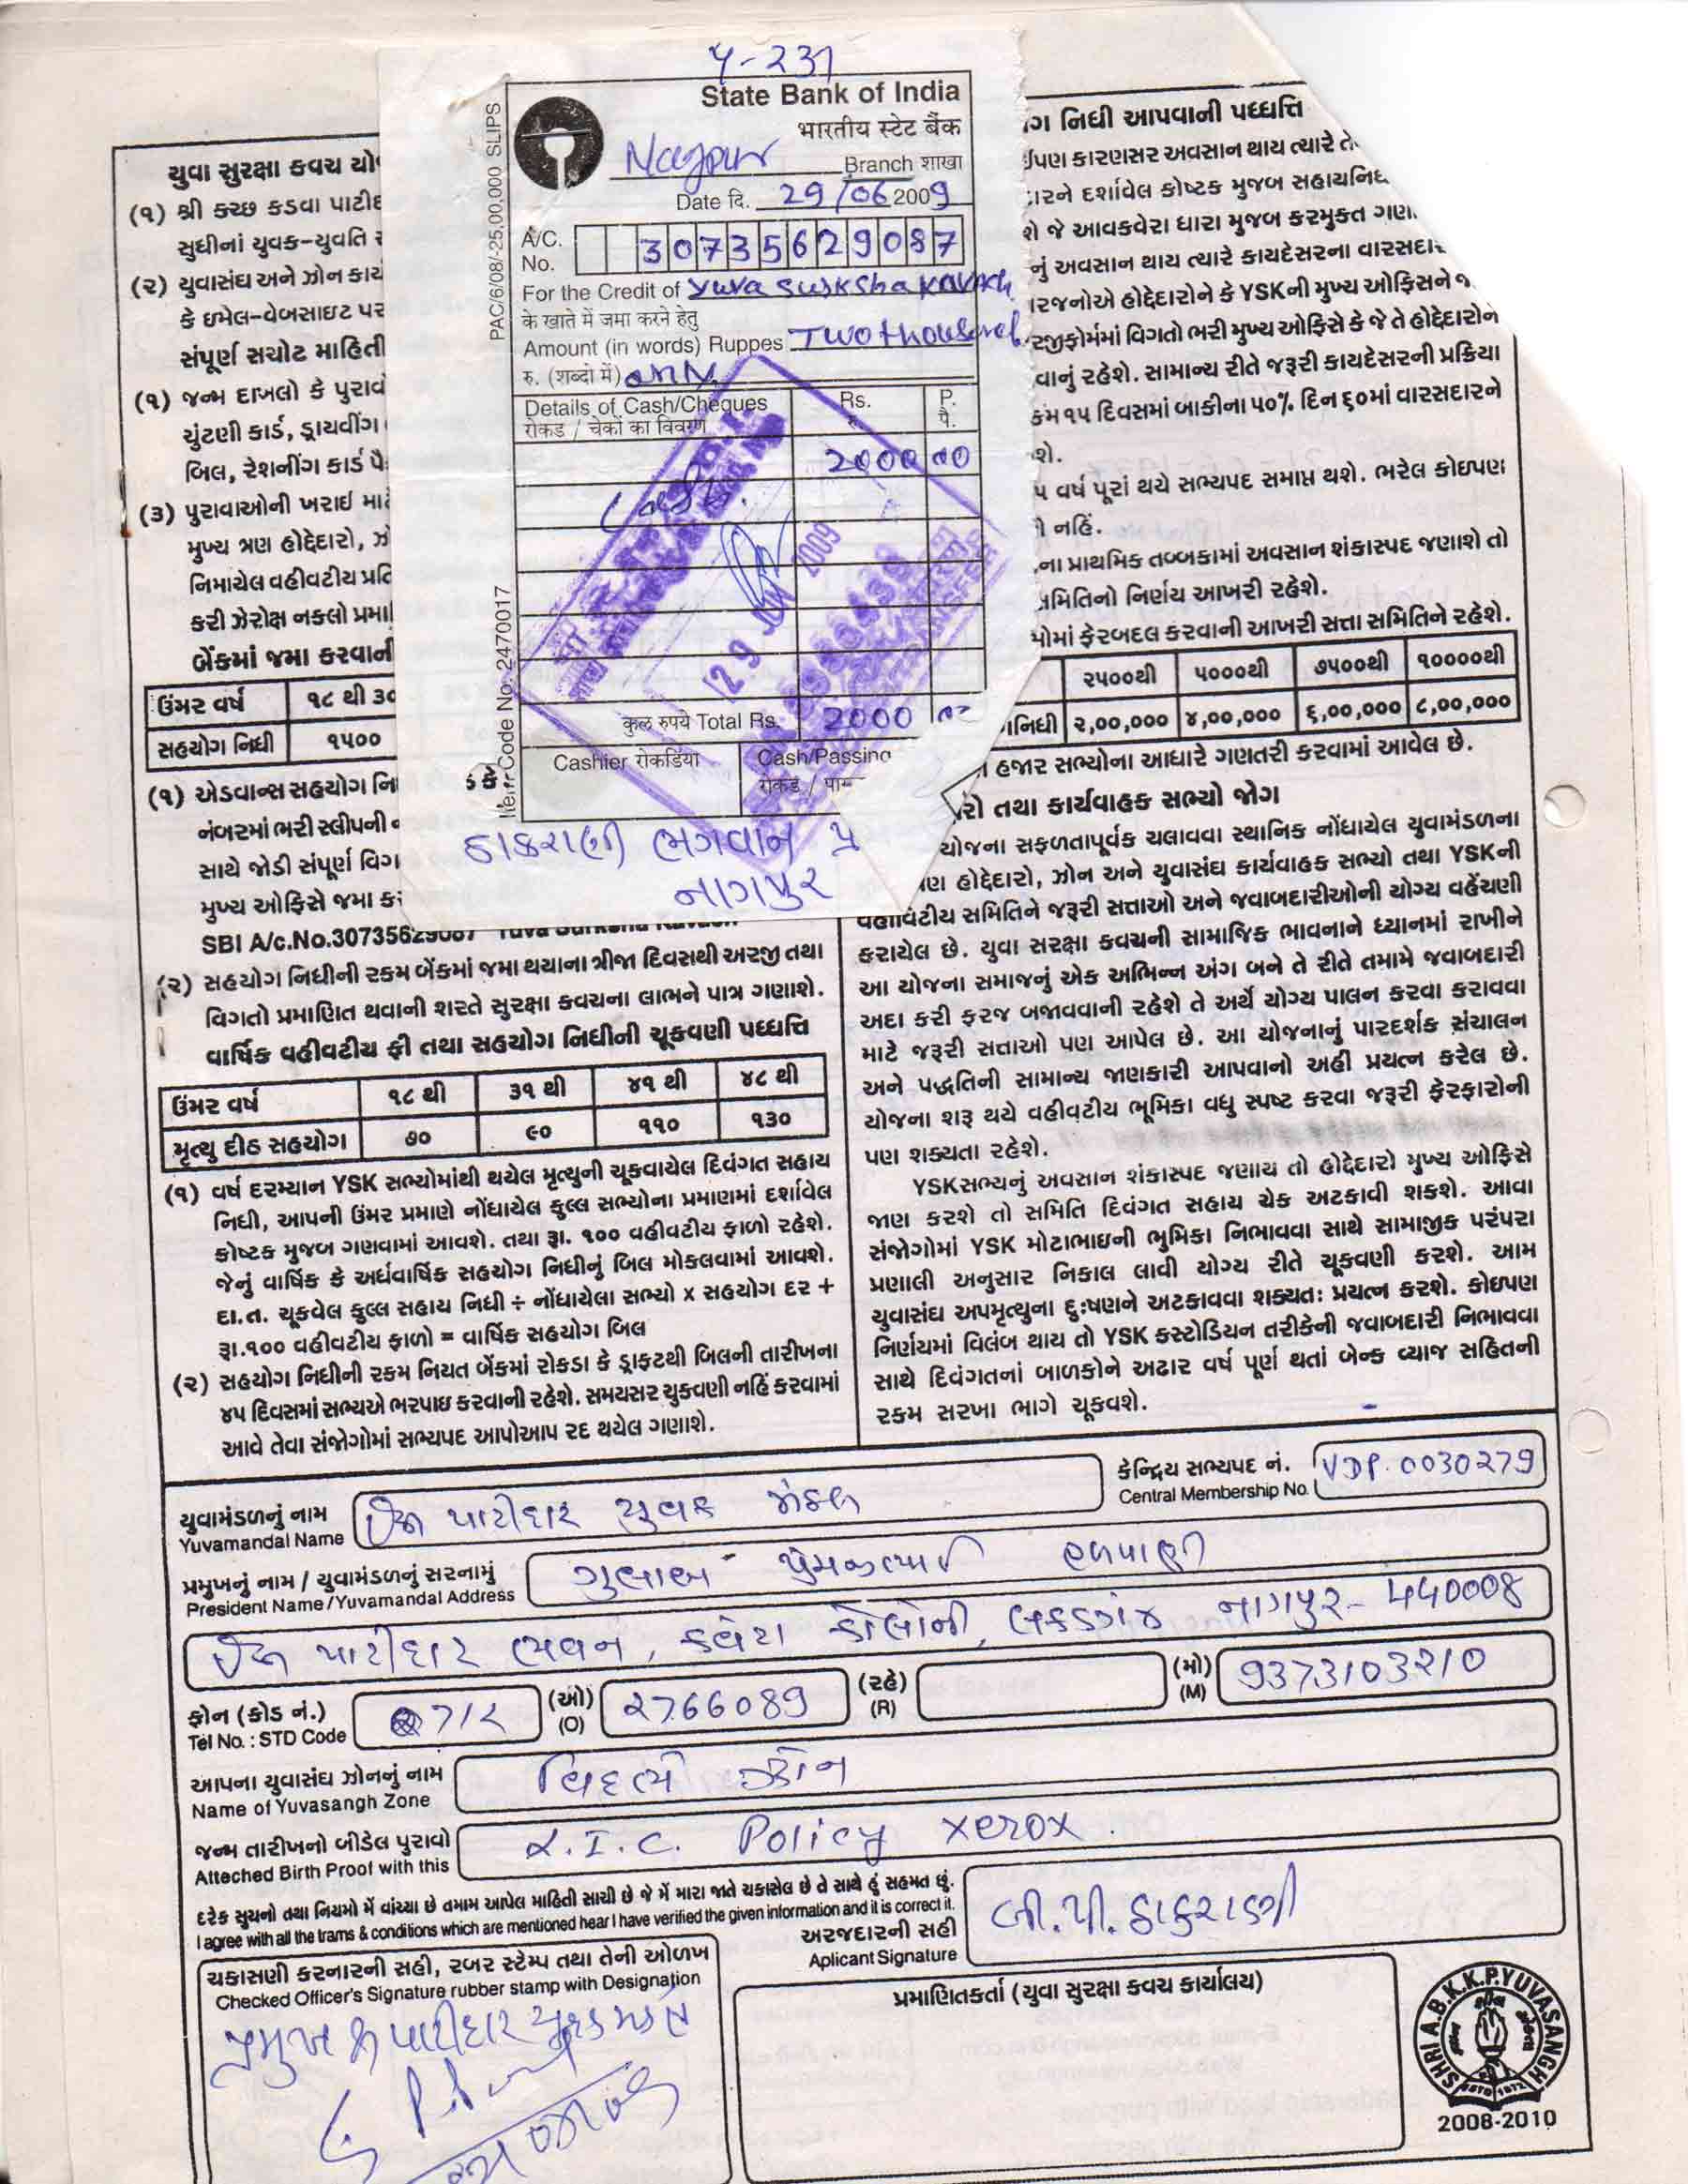 ૫-૨૩૧
State Bank of India
भारतीय स्टेट बैंक
Nagpur Branch शाखा
Date दि. 29/06 2009
A/C. No. 30735629087
For the Credit of Yuva Surksha Kavach
के खाते में जमा करने हेतु
Amount (in words) Ruppes Two thousand
रु. (शब्दों में) only.
Details of Cash/Cheques Rs. P.
रोकड / चेकों का विवरण रु. पै.
2000 00
Cash.
कुल रुपये Total Rs. 2000
Cashier रोकडिया Cash/Passing
रोकड /
PAC/6/08/-25,00,000 SLIPS
Item Code No. 2470017
ઠાકરાણી ભગવાન પ્ર
નાગપુર
યુવા સુરક્ષા કવચ
(૧) શ્રી કચ્છ કડવા
સુધીનાં યુવક-યુવતિ
(૨) યુવાસંઘ અને ઝોન
કે ઇમેલ-વેબસાઇટ પર
સંપૂર્ણ સચોટ માહિતી
(૧) જન્મ દાખલો કે
ચુંટણી કાર્ડ, ડ્રાયવીંગ
બિલ, રેશનીંગ કાર્ડ
(૩) પુરાવાઓની ખરાઇ
મુખ્ય ત્રણ હોદ્દેદારો,
નિમાયેલ વહીવટીય
કરી ઝેરોક્ષ નકલો
બેંકમાં જમા કરવાની
ઉંમર વર્ષ ૧૮ થી ૩૦
સહયોગ નિધી ૧૫૦૦
(૧) એડવાન્સ સહયોગ
નંબરમાં ભરી સ્લીપની
સાથે જોડી સંપૂર્ણ
મુખ્ય ઓફિસે જમા
SBI A/c.No.30735629087 Yuva Surksha Kavach
(૨) સહયોગ નિધીની રકમ બેંકમાં જમા થયાના ત્રીજા દિવસથી અરજી તથા
વિગતો પ્રમાણિત થવાની શરતે સુરક્ષા કવચના લાભને પાત્ર ગણાશે.
વાર્ષિક વહીવટીય ફી તથા સહયોગ નિધીની ચૂકવણી પધ્ધતિ
ઉંમર વર્ષ ૧૮ થી ૩૧ થી ૪૧ થી ૪૮ થી
મૃત્યુ દીઠ સહયોગ ૭૦ ૯૦ ૧૧૦ ૧૩૦
(૧) વર્ષ દરમ્યાન YSK સભ્યોમાંથી થયેલ મૃત્યુની ચૂકવાયેલ દિવંગત સહાય
નિધી, આપની ઉંમર પ્રમાણે નોંધાયેલ કુલ્લ સભ્યોના પ્રમાણમાં દર્શાવેલ
કોષ્ટક મુજબ ગણવામાં આવશે. તથા રૂા. ૧૦૦ વહીવટીય ફાળો રહેશે.
જેનું વાર્ષિક કે અર્ધવાર્ષિક સહયોગ નિધીનું બિલ મોકલવામાં આવશે.
દા.ત. ચૂકવેલ કુલ્લ સહાય નિધી ÷ નોંધાયેલા સભ્યો x સહયોગ દર +
રૂા.૧૦૦ વહીવટીય ફાળો = વાર્ષિક સહયોગ બિલ
(૨) સહયોગ નિધીની રકમ નિયત બેંકમાં રોકડા કે ડ્રાફટથી બિલની તારીખના
૪૫ દિવસમાં સભ્યએ ભરપાઇ કરવાની રહેશે. સમયસર ચુકવણી નહિં કરવામાં
આવે તેવા સંજોગોમાં સભ્યપદ આપોઆપ રદ થયેલ ગણાશે.
નિધી આપવાની પધ્ધતિ
કારણસર અવસાન થાય ત્યારે
દર્શાવેલ કોષ્ટક મુજબ
જે આવકવેરા ધારા મુજબ કરમુક્ત
નું અવસાન થાય ત્યારે કાયદેસરના
હોદ્દેદારોને કે YSKની મુખ્ય ઓફિસને
વિગતો ભરી મુખ્ય ઓફિસે કે જે તે હોદ્દેદારોને
રહેશે. સામાન્ય રીતે જરૂરી કાયદેસરની પ્રક્રિયા
૧૫ દિવસમાં બાકીના ૫૦% દિન ૬૦માં વારસદારને
વર્ષ પૂરાં થયે સભ્યપદ સમાપ્ત થશે. ભરેલ કોઇપણ
નહિં.
પ્રાથમિક તબ્બકામાં અવસાન શંકાસ્પદ જણાશે તો
નિર્ણય આખરી રહેશે.
ફેરબદલ કરવાની આખરી સત્તા સમિતિને રહેશે.
૨૫૦૦થી ૫૦૦૦થી ૭૫૦૦થી ૧૦૦૦૦થી
૨,૦૦,૦૦૦ ૪,૦૦,૦૦૦ ૬,૦૦,૦૦૦ ૮,૦૦,૦૦૦
હજાર સભ્યોના આધારે ગણતરી કરવામાં આવેલ છે.
તથા કાર્યવાહક સભ્યો જોગ
યોજના સફળતાપૂર્વક ચલાવવા સ્થાનિક નોંધાયેલ યુવામંડળના
હોદ્દેદારો, ઝોન અને યુવાસંઘ કાર્યવાહક સભ્યો તથા YSKની
વહીવટીય સમિતિને જરૂરી સત્તાઓ અને જવાબદારીઓની યોગ્ય વહેંચણી
કરાયેલ છે. યુવા સરક્ષા કવચની સામાજિક ભાવનાને ધ્યાનમાં રાખીને
આ યોજના સમાજનું એક અભિન્ન અંગ બને તે રીતે તમામે જવાબદારી
અદા કરી ફરજ બજાવવાની રહેશે તે અર્થે યોગ્ય પાલન કરવા કરાવવા
માટે જરૂરી સત્તાઓ પણ આપેલ છે. આ યોજનાનું પારદર્શક સંચાલન
અને પદ્ધતિની સામાન્ય જાણકારી આપવાનો અહી પ્રયત્ન કરેલ છે.
યોજના શરૂ થયે વહીવટીય ભૂમિકા વધુ સ્પષ્ટ કરવા જરૂરી ફેરફારોની
પણ શક્યતા રહેશે.
YSKસભ્યનું અવસાન શંકાસ્પદ જણાય તો હોદ્દેદારો મુખ્ય ઓફિસે
જાણ કરશે તો સમિતિ દિવંગત સહાય ચેક અટકાવી શકશે. આવા
સંજોગોમાં YSK મોટાભાઇની ભુમિકા નિભાવવા સાથે સામાજીક પરંપરા
પ્રણાલી અનુસાર નિકાલ લાવી યોગ્ય રીતે ચૂકવણી કરશે. આમ
યુવાસંઘ અપમૃત્યુના દુઃષણને અટકાવવા શક્યતઃ પ્રયત્ન કરશે. કોઇપણ
નિર્ણયમાં વિલંબ થાય તો YSK કસ્ટોડિયન તરીકેની જવાબદારી નિભાવવા
સાથે દિવંગતનાં બાળકોને અઢાર વર્ષ પૂર્ણ થતાં બેન્ક વ્યાજ સહિતની
રકમ સરખા ભાગે ચૂકવશે.
યુવામંડળનું નામ પાટીદાર યુવક મંડળ
Yuvamandal Name
કેન્દ્રિય સભ્યપદ નં. VDP.0030279
Central Membership No.
પ્રમુખનું નામ / યુવામંડળનું સરનામું ગુલાબ
President Name/Yuvamandal Address
પાટીદાર ભવન, ક્વેટા કોલોની, લકડગંજ નાગપુર- 440008
ફોન (કોડ નં.) 0712 (ઓ) 2766089 (રહે) (મો) 9373103210
Tel No. : STD Code (O) (R) (M)
આપના યુવાસંઘ ઝોનનું નામ વિદર્ભ ઝોન
Name of Yuvasangh Zone
જન્મ તારીખનો બીડેલ પુરાવો L.I.C. Policy xerox.
Atteched Birth Proof with this
દરેક સુચનો તથા નિયમો મેં વાંચ્યા છે તમામ આપેલ માહિતી સાચી છે જે મેં મારા જાતે ચકાસેલ છે તે સાથે હું સહમત છું.
I agree with all the trams & conditions which are mentioned hear I have verified the given information and it is correct it.
અરજદારની સહી બી.પી. ઠાકરાણી
Aplicant Signature
ચકાસણી કરનારની સહી, રબર સ્ટેમ્પ તથા તેની ઓળખ
Checked Officer's Signature rubber stamp with Designation
પ્રમુખ શ્રી પાટીદાર યુવક મંડળ
પ્રમાણિતકર્તા (યુવા સુરક્ષા કવચ કાર્યાલય)
SHRI A.B.K.K.P.YUVASANGH
ESTD 1972
2008-2010